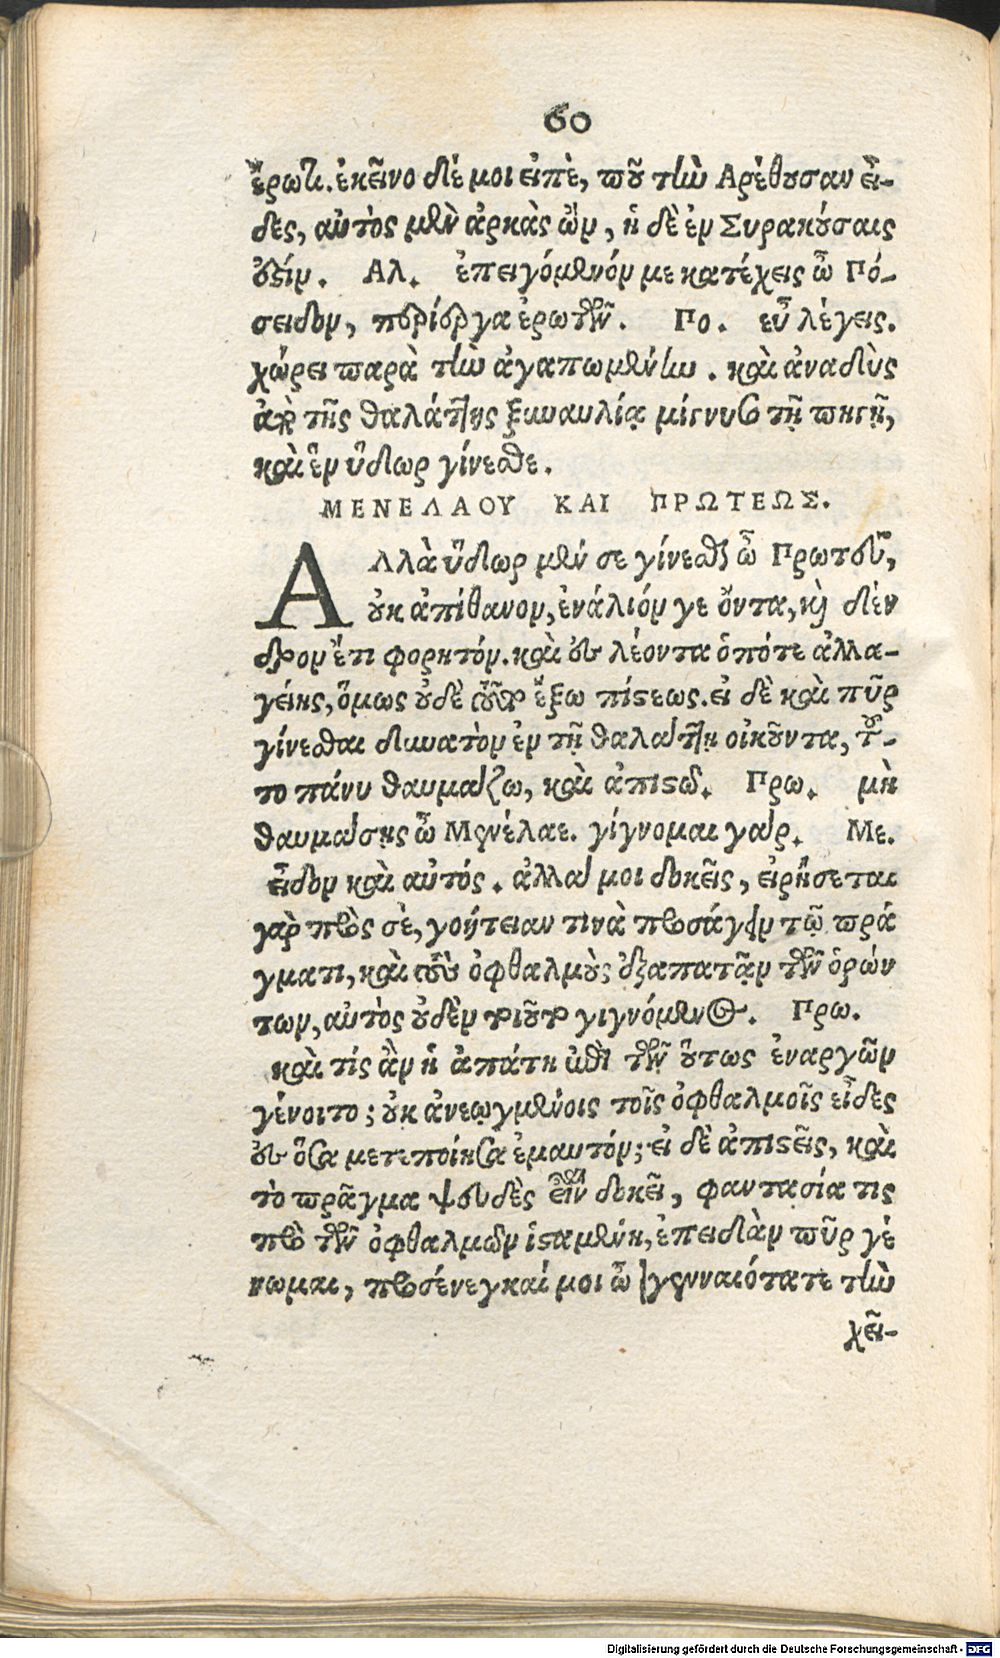 60
ἔρωτι. ἐκεῖνο δέ μοι εἰπὲ, ποῦ τὴν Ἀρέθουσαν εἶ-
δες, αὐτὸς μὲν ἀρκὰς ὢν, ἡ δὲ ἐν Συρακούσαις
ἐστίν. Αλ. ἐπειγόμενόν με κατέχεις ὦ Πό-
σειδον, περίεργα ἐρωτῶν. Πο. εὖ λέγεις.
χώρει παρὰ τὴν ἀγαπωμένην. καὶ ἀναδὺς
ἀπὸ τῆς θαλάττης ξυναυλίᾳ μίγνυσο τῇ πηγῇ,
καὶ ἓν ὕδωρ γίνεσθε.
ΜΕΝΕΛΑΟΥ ΚΑΙ ΠΡΩΤΕΩΣ.
ΑΛλὰ ὕδωρ μέν σε γίνεσθαι ὦ Πρωτεῦ,
οὐκ ἀπίθανον, ἐνάλιόν γε ὄντα, καὶ δέν
δρον ἔτι φορητόν. καὶ ἐς λέοντα ὁπότε ἀλλα-
γείης, ὅμως οὐδὲ τοῦτο ἔξω πίστεως. εἰ δὲ καὶ πῦρ
γίνεσθαι δυνατὸν ἐν τῇ θαλάττῃ οἰκοῦντα, τοῦ-
το πάνυ θαυμάζω, καὶ ἀπιστῶ. Πρω. μὴ
θαυμάσῃς ὦ Μενέλαε. γίγνομαι γάρ. Με.
εἶδον καὶ αὐτός. ἀλλά μοι δοκεῖς, εἰρήσεται
γὰρ πρὸς σὲ, γοητείαν τινὰ προσάγειν τῷ πρά
γματι, καὶ τοὺς ὀφθαλμοὺς ἐξαπατᾷν τῶν ὁρών
των, αὐτὸς οὐδὲν τοιοῦτο γιγνόμενος. Πρω.
καὶ τίς ἂν ἡ ἀπάτη ἐπὶ τῶν οὕτως ἐναργῶν
γένοιτο; οὐκ ἀνεῳγμένοις τοῖς ὀφθαλμοῖς εἶδες
ἐς ὅσα μετεποίησα ἐμαυτόν; εἰ δὲ ἀπιστεῖς, καὶ
τὸ πρᾶγμα ψευδὲς εἶναι δοκεῖ, φαντασία τις
πρὸ τῶν ὀφθαλμῶν ἱσταμένη, ἐπειδὰν πῦρ γέ
νωμαι, προσένεγκαί μοι ὦ γενναιότατε τὴν
χεῖ-
Digitalisierung gefördert durch die Deutsche Forschungsgemeinschaft - DFG